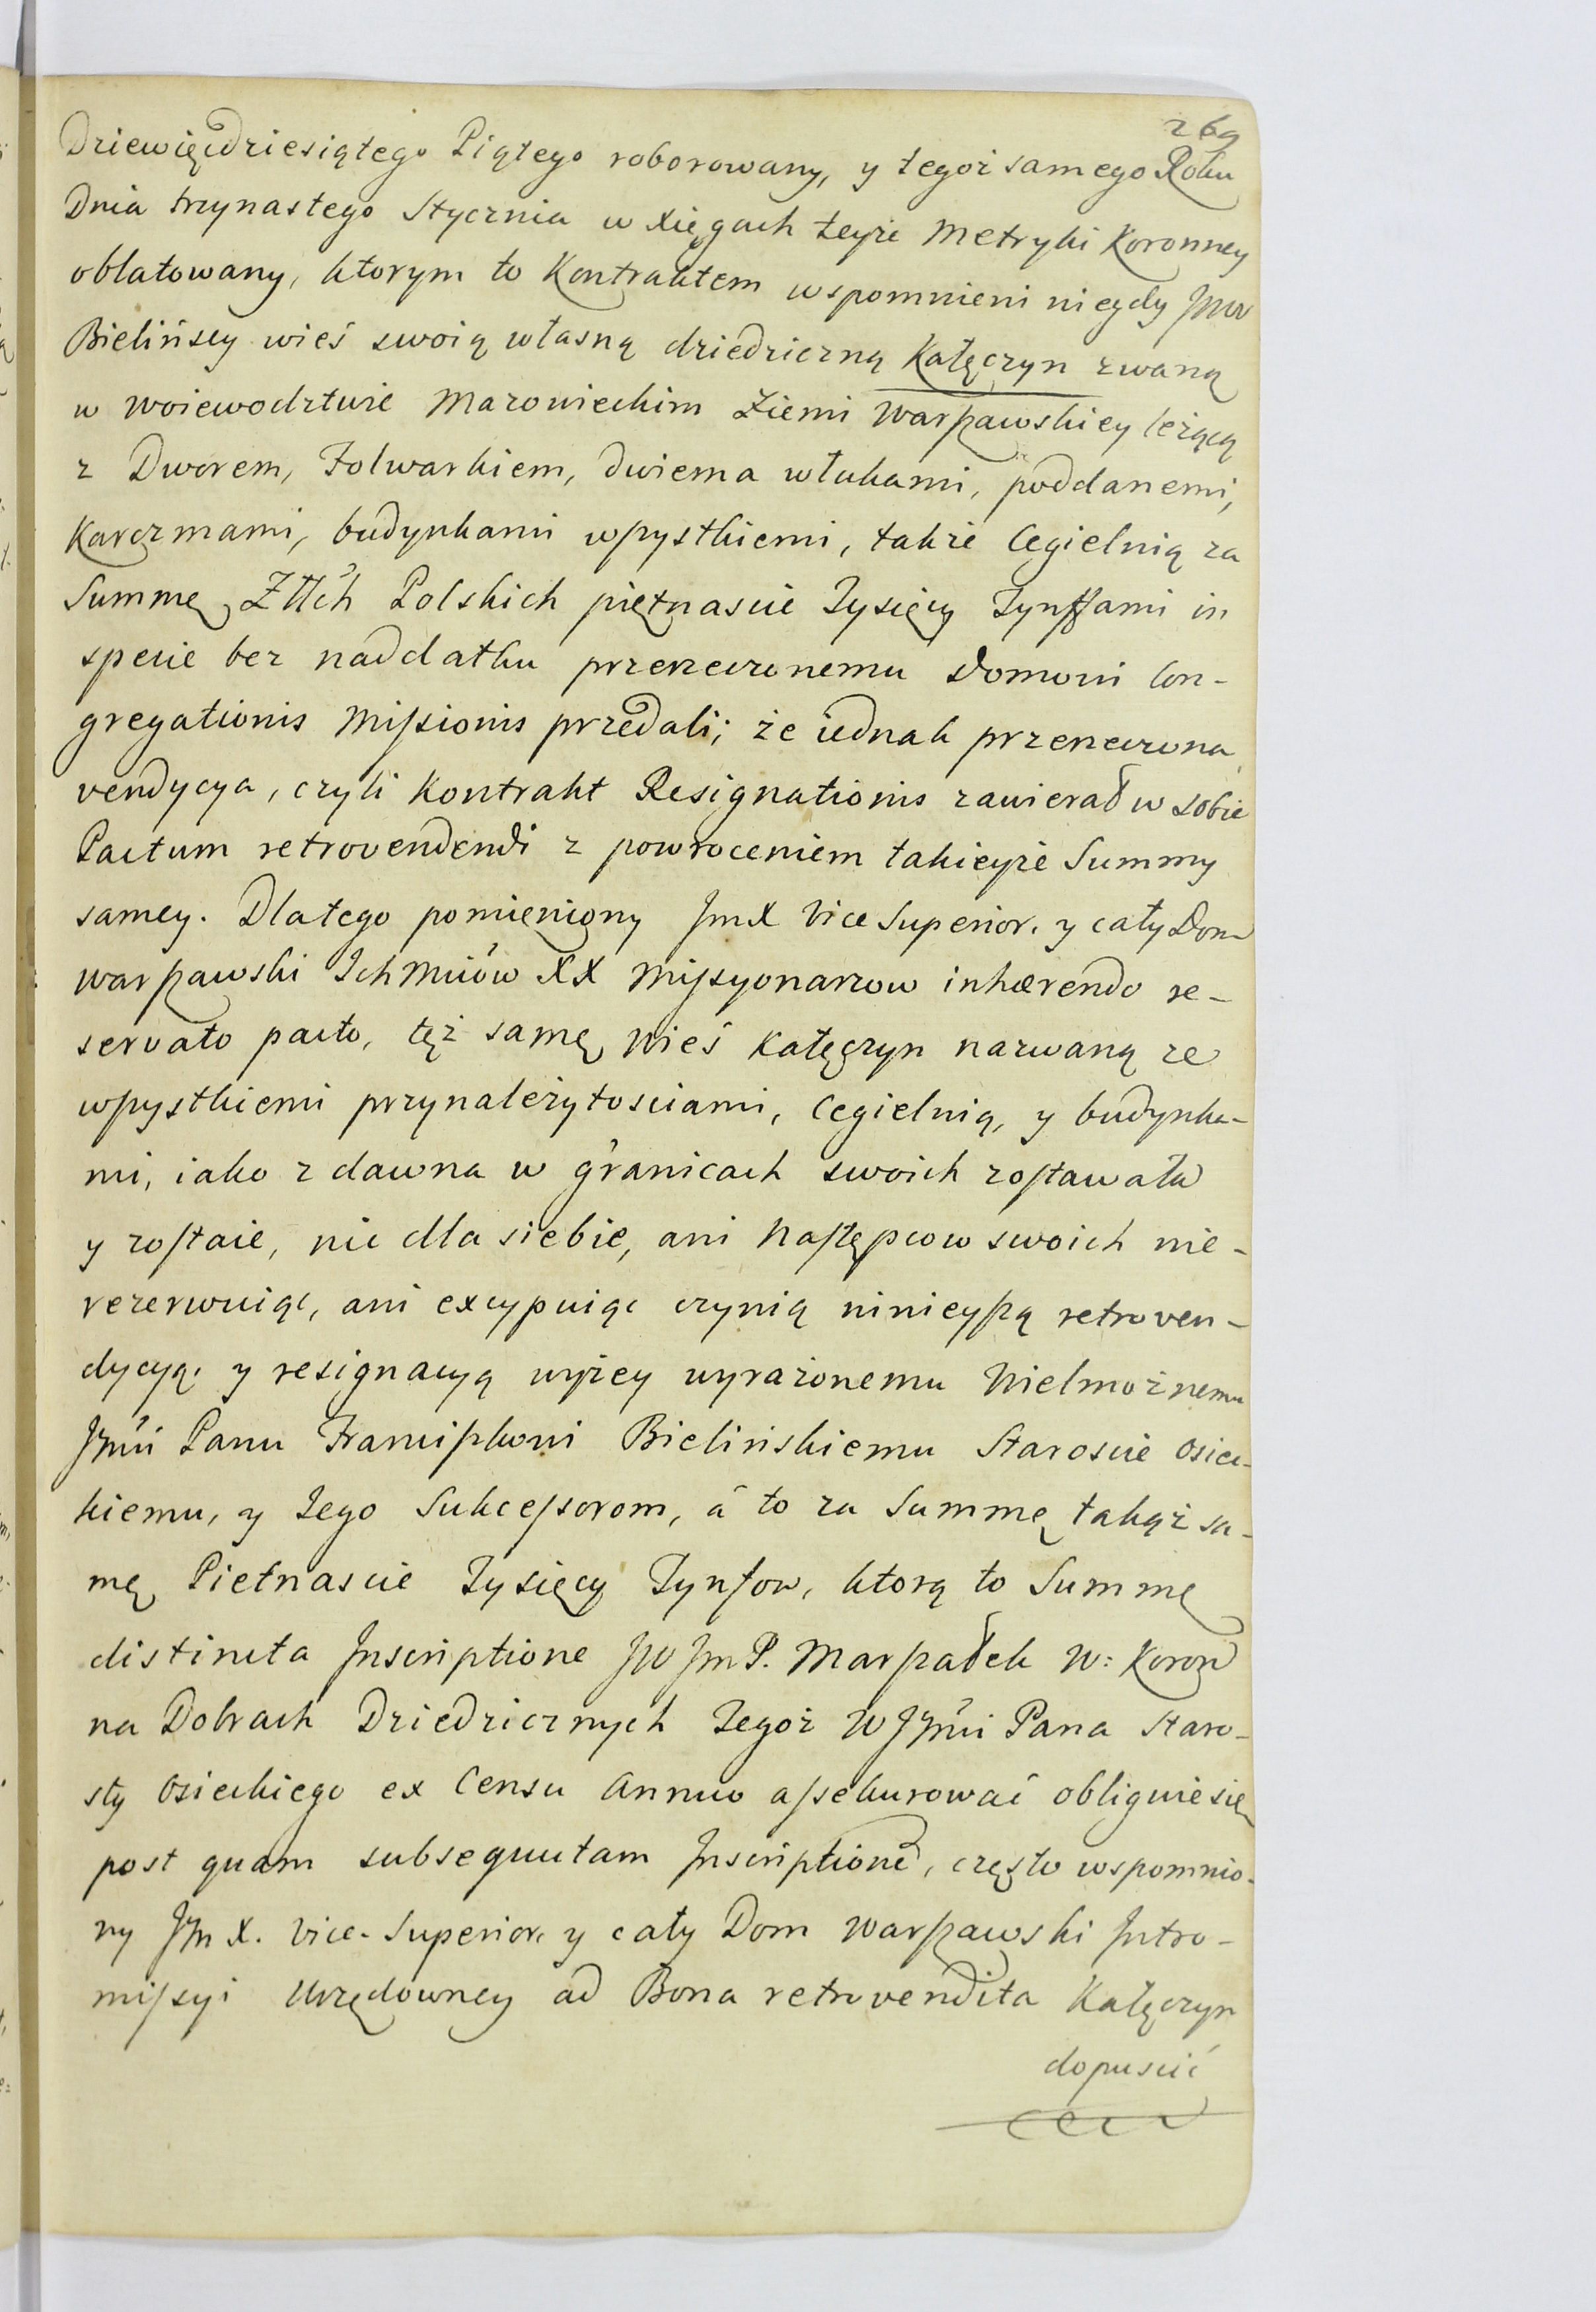 269
Dziewięcdziesiątego Piątego roborowany, y tegoż samego Roku
Dnia trzynastego Stycznia w Xięgach teyże Metryki Koronney
oblatowany, ktorym to Kontraktem wspomnieni niegdy JMW
Bielińscy wieś swoią własną dziedziczną Kałęczyn zwaną
w Woiewodztwie Mazowieckim Ziemi Warszawskiey leżącą
z Dworem, Folwarkiem, dwiema włukami, poddanemi,
Karczmami, budynkami wszystkiemi, także Cegielnią za
Summę Złłch Polskich piętnascie Tysięcy Tynffami in
specie bez naddatku przerzeczonemu Domowi Con-
gregationis Missionis przedali; że iednak przerzeczona
vendycya, czyli Kontrakt Resignationis zawierał w sobie
Pactum retrovendendi z powroceniem takieyże Summy
samey. Dlatego pomieniony JmX Vice Superior, y cały Dom
Warszawski Ichmciów XX Missyonarzow inhærendo re-
servato pacto, tęż samę Wieś Kałęczyn nazwaną ze
wszystkiemi przynależytosciami, Cegielnią, y budynka-
mi, iako z dawna w granicach swoich zostawała
y zostaie, nic dla siebie, ani Następcow swoich nie-
rezerwuiąc, ani excypuiąc czynią ninieyszą retroven-
dycyą, y resignacyą wyżey wyrażonemu Wielmożnemu
JMci Panu Franciszkowi Bielińskiemu Staroscie Osiec-
kiemu, y Jego Sukcessorom, á to za Summę takąż sa-
mę Pietnascie Tysięcy Tynfow, ktorą to Summę
distincta Inscriptione JW JmP. Marszałek W: Koron
na Dobrach Dziedzicznych Tegoż WJMci Pana Staro-
sty Osieckiego ex Censu Annuo assekurować obliguie się
post quam subsequutam Inscriptione, często wspomnio-
ny JM X. Vice-Superior, y cały Dom Warszawski Intro-
missyi Urzędowney ad Bona retrovendita Kałęczyn
dopuscić